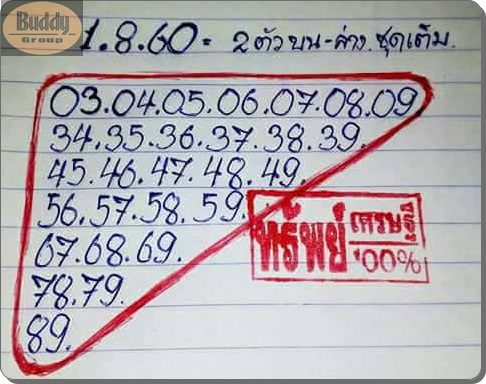 Buddy
Group
1.8.60 = 2 ตัวบน-ล่าง.ชุดเต็ม.
03.04.05.06.07.08.09
34.35.36.37.38.39.
45.46.47.48.49.
56.57.58.59.
67.68.69.
78.79.
89.
ทรัพย์ เศรษฐี
100%